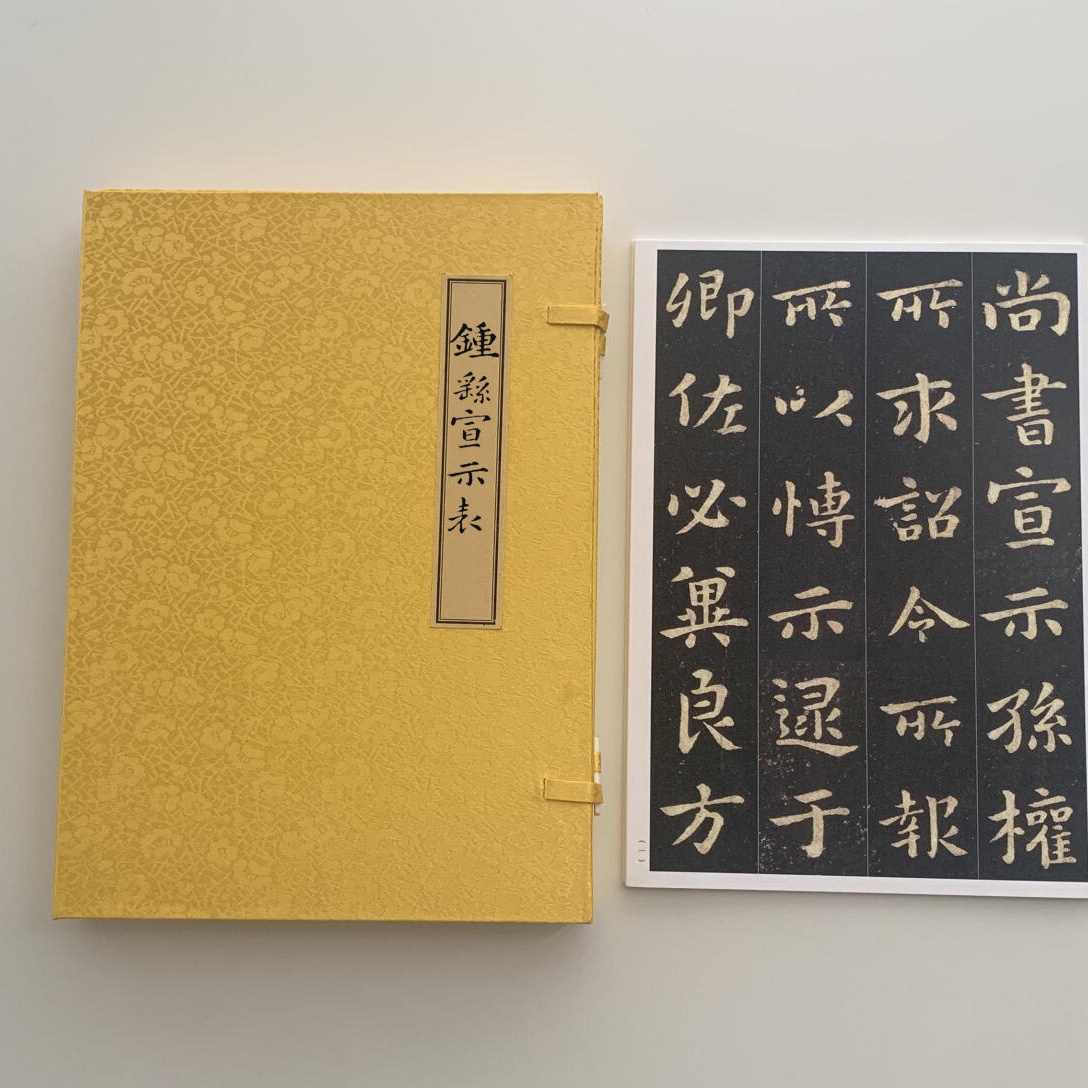 鍾繇宣示表
尚書宣示孫權
所求詔令所報
所以愽示逮于
卿佐必冀良方
(一)